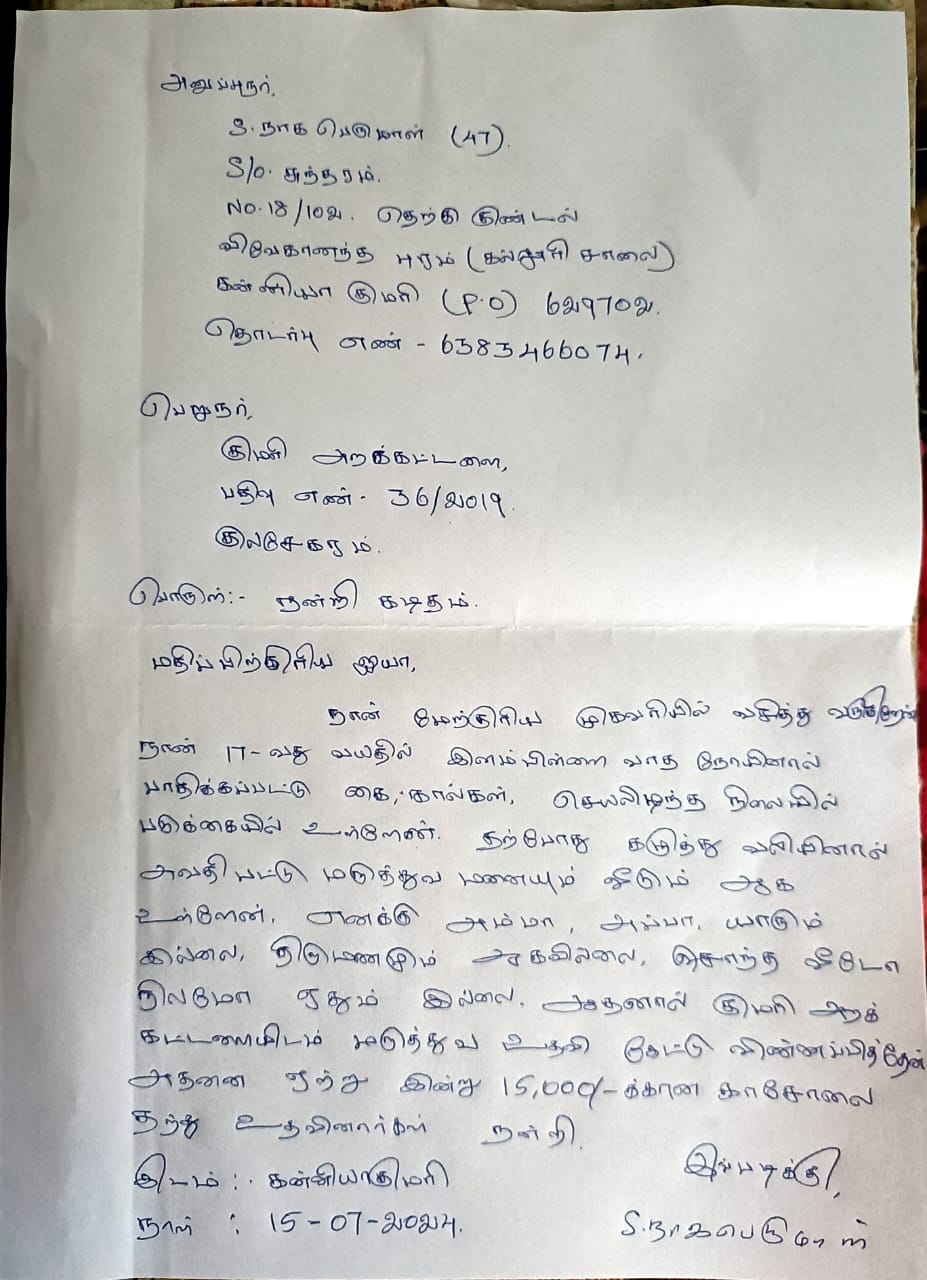 அனுப்புநர்,
S. நாக பெருமாள் (47).
S/o. சுந்தரம்.
No. 18/102. தெற்கு குண்டல்
விவேகானந்த புரம் (கல்லூரி சாலை)
கன்னியா குமரி (P.O) 629702.
தொடர்பு எண் - 6383466074.
பெறுநர்,
குமரி அறக்கட்டளை,
பதிவு எண் - 36/2019.
குலசேகரம்.
பொருள்:- நன்றி கடிதம்.
மதிப்பிற்குரிய ஐயா,
நான் மேற்குரிய முகவரியில் வசித்து வருகிறேன்
நான் 17-வது வயதில் இளம்பிள்ளை வாத நோயினால்
பாதிக்கப்பட்டு கை, கால்கள், செயலிழந்த நிலையில்
படுக்கையில் உள்ளேன். தற்போது கழுத்து வலியினால்
அவதி பட்டு மருத்துவ மனையும் வீடும் ஆக
உள்ளேன். எனக்கு அம்மா, அப்பா, யாரும்
இல்லை, திருமணமும் ஆகவில்லை, சொந்த வீடோ
நிலமோ ஏதும் இல்லை. ஆதனால் குமரி அறக்
கட்டளையிடம் மருத்துவ உதவி கேட்டு விண்ணப்பித்தேன்
அதனை ஏற்று இன்று 15,000/- க்கான காசோலை
தந்து உதவினார்கள் நன்றி.
இப்படிக்கு,
இடம் : கன்னியாகுமரி
நாள் : 15-07-2024.
S. நாகபெருமாள்